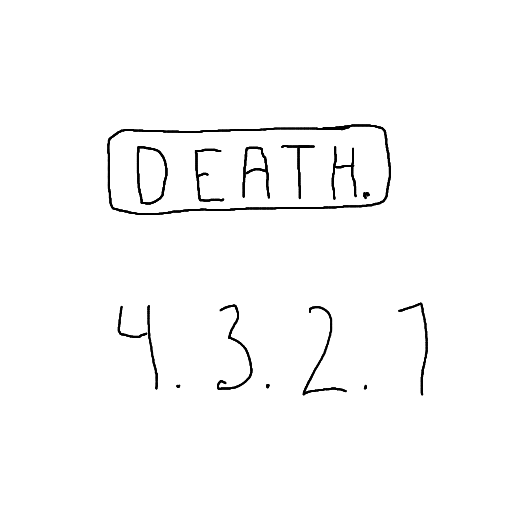 DEATH.
4.3.2.1